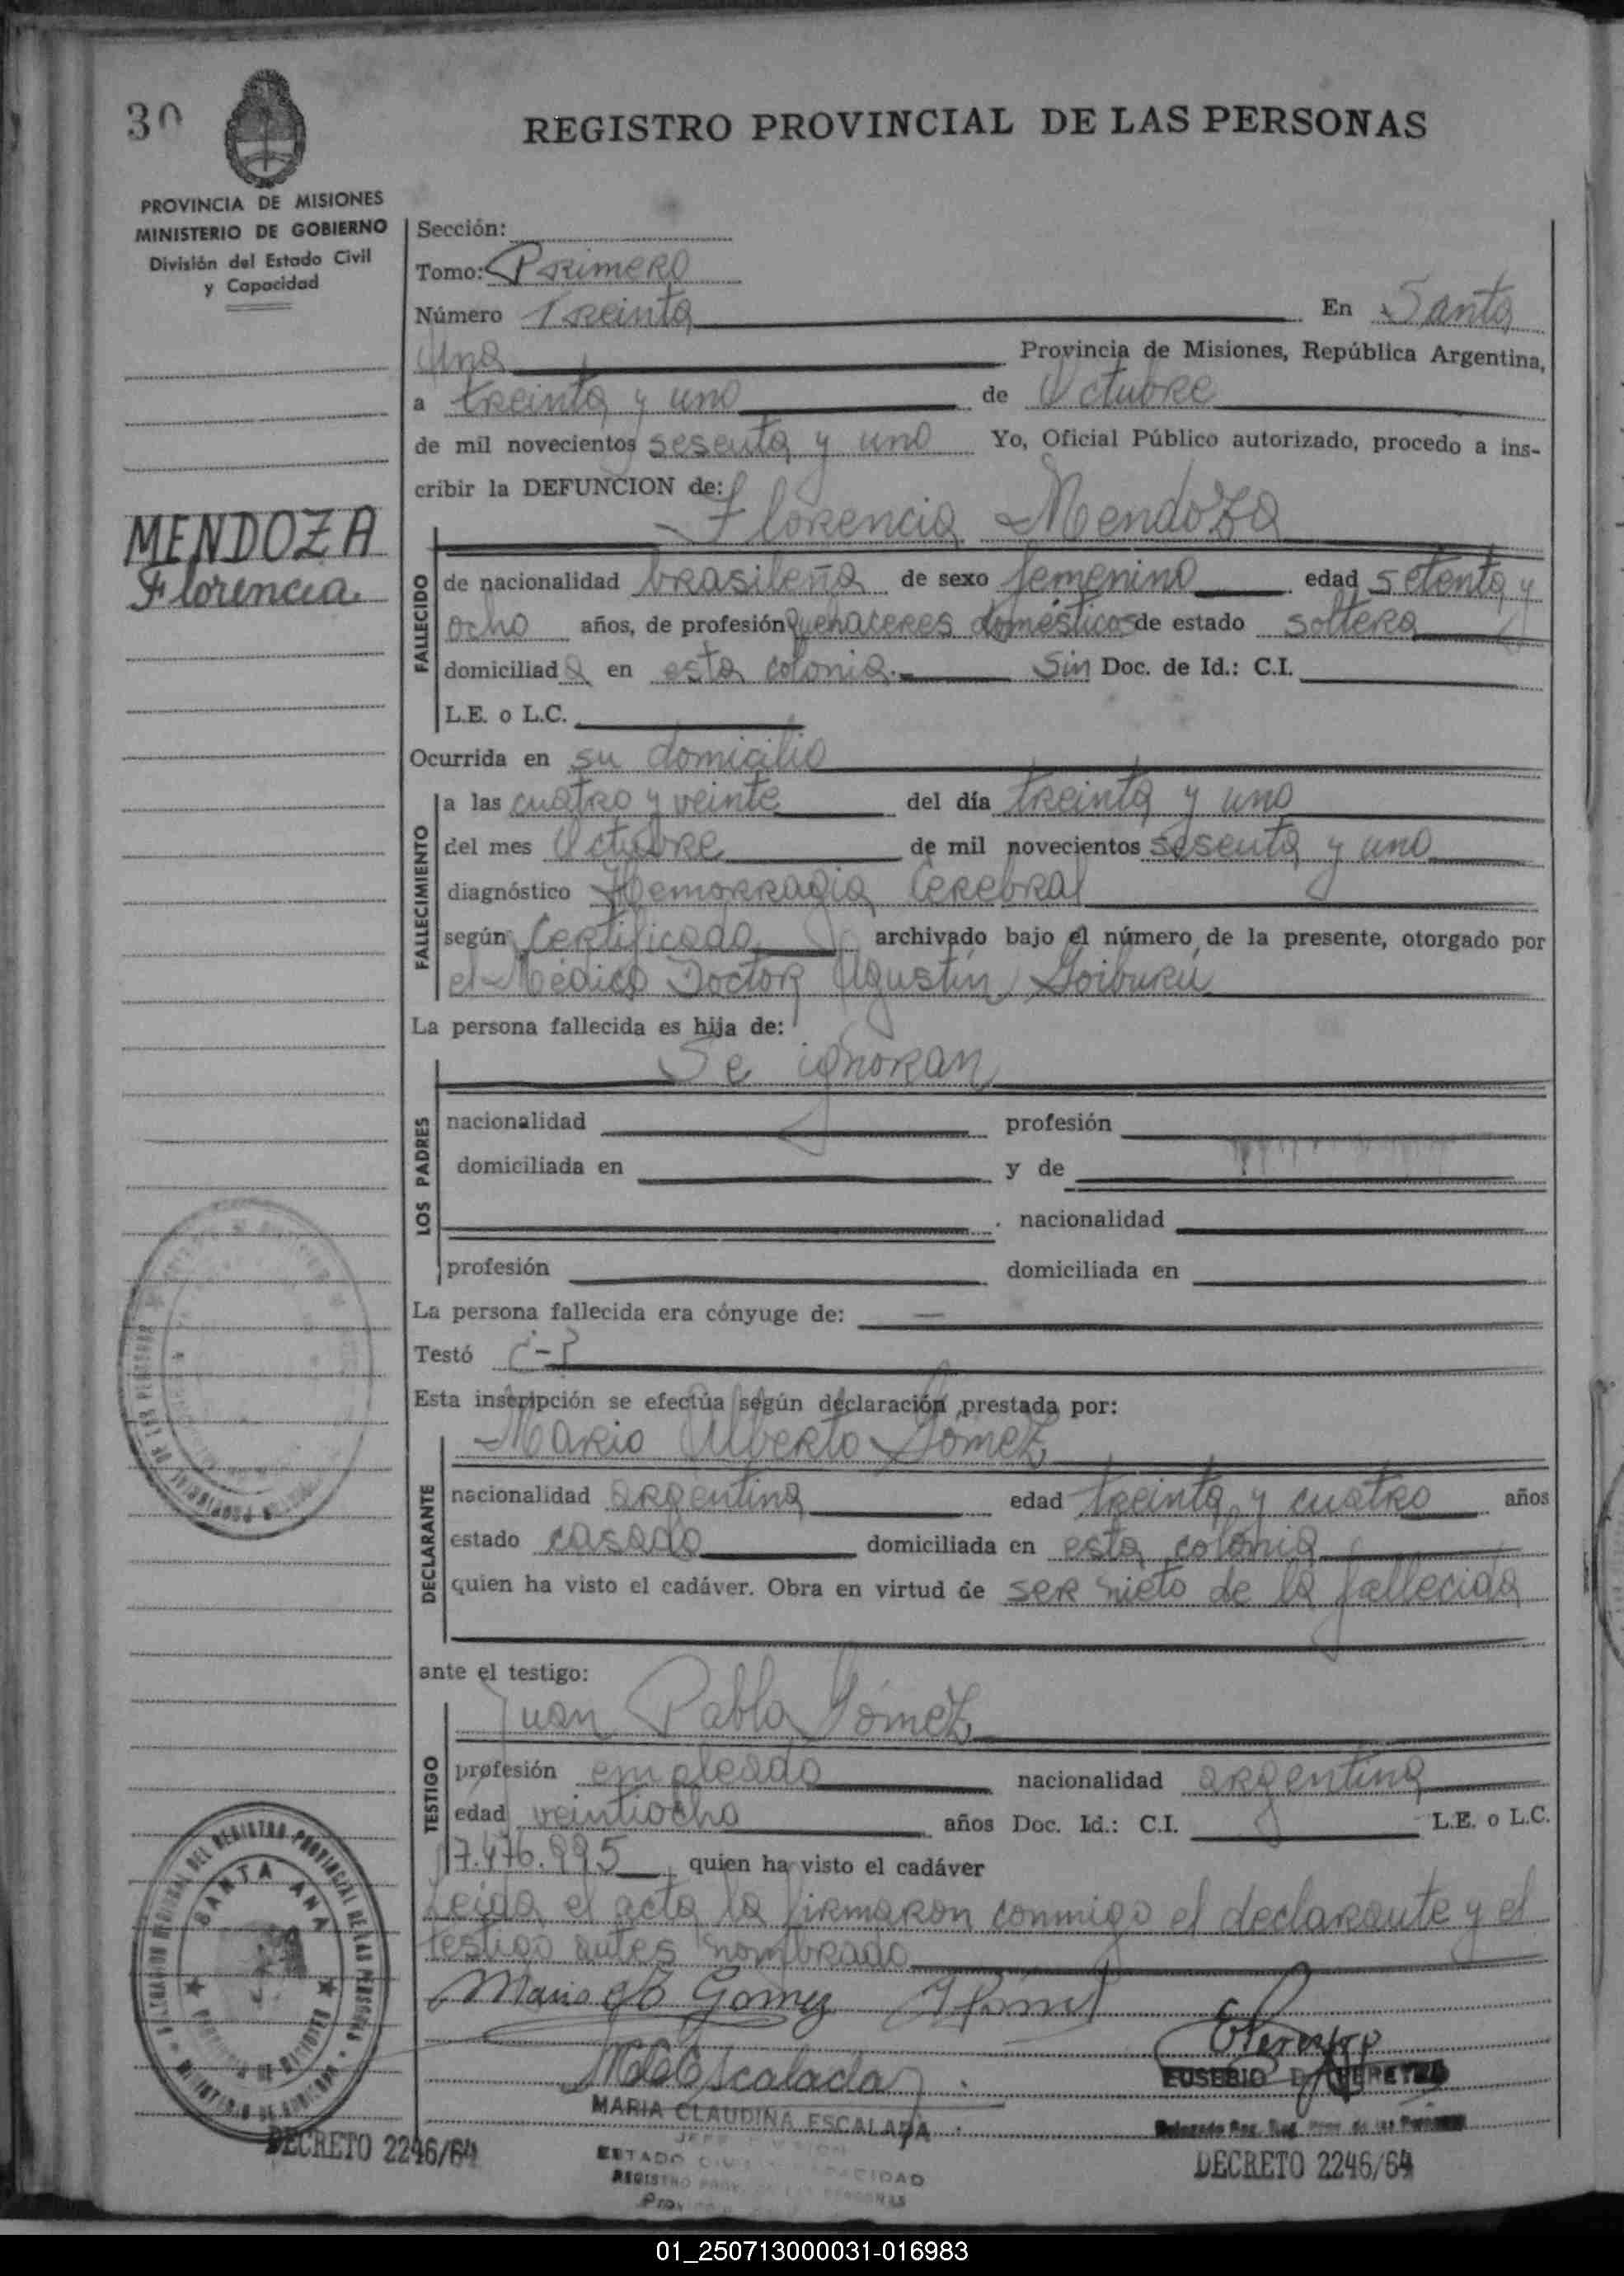 30
REGISTRO PROVINCIAL DE LAS PERSONAS
PROVINCIA DE MISIONES
MINISTERIO DE GOBIERNO
División del Estado Civil
y Capacidad
MENDOZA
Florencia
Sección:
Tomo: Primero
Número Treinta En Santa
Ana Provincia de Misiones, República Argentina,
a treinta y uno de Octubre
de mil novecientos sesenta y uno Yo, Oficial Público autorizado, procedo a ins-
cribir la DEFUNCION de:
Florencia Mendoza
FALLECIDO
de nacionalidad brasileña de sexo femenino edad setenta y
ocho años, de profesión quehaceres domésticos de estado soltera
domiciliada en esta colonia.- Sin Doc. de Id.: C.I.
L.E. o L.C.
Ocurrida en su domicilio
FALLECIMIENTO
a las cuatro y veinte del día treinta y uno
del mes Octubre de mil novecientos sesenta y uno
diagnóstico Hemorragia Cerebral
según Certificado archivado bajo el número de la presente, otorgado por
el Médico Doctor Agustín Goiburú
La persona fallecida es hija de:
Se ignoran
LOS PADRES
nacionalidad profesión
domiciliada en y de
. nacionalidad
profesión domiciliada en
La persona fallecida era cónyuge de: —
Testó
Esta inscripción se efectúa según declaración prestada por:
Mario Alberto Gómez
DECLARANTE
nacionalidad argentina edad treinta y cuatro años
estado casado domiciliada en esta colonia
quien ha visto el cadáver. Obra en virtud de ser nieto de la fallecida
ante el testigo:
Juan Pablo Gómez
TESTIGO
profesión empleado nacionalidad argentina
edad veintiocho años Doc. Id.: C.I. L.E. o L.C.
17.476.995 quien ha visto el cadáver
Leida el acta la firmaron conmigo el declarante y el
testigo antes nombrado
Mario Gomez
Escalada
MARIA CLAUDINA ESCALADA
JEFE DIVISION
ESTADO CIVIL Y CAPACIDAD
REGISTRO PROV. DE LAS PERSONAS
EUSEBIO PEREYRA
SANTA ANA
DECRETO 2246/64
DECRETO 2246/64
01_250713000031-016983